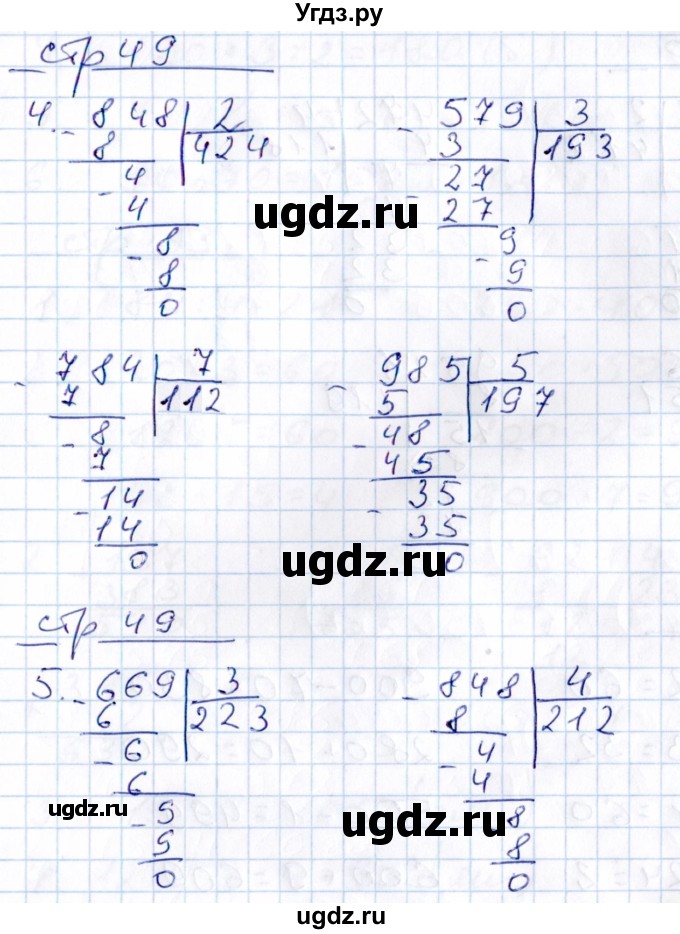 Угдз.ру
стр 49
4. - 848 | 2
8 | 424
- 4
4
- 8
8
0
- 579 | 3
3 | 193
- 27
27
- 9
9
0
- 784 | 7
7 | 112
- 8
7
- 14
14
0
- 985 | 5
5 | 197
- 48
45
- 35
35
0
ugdz.ru
ugdz.ru
стр 49
5. - 669 | 3
6 | 223
- 6
6
- 9
9
0
- 848 | 4
8 | 212
- 4
4
8
8
0
ugdz.ru
ugdz.ru
ugdz.ru